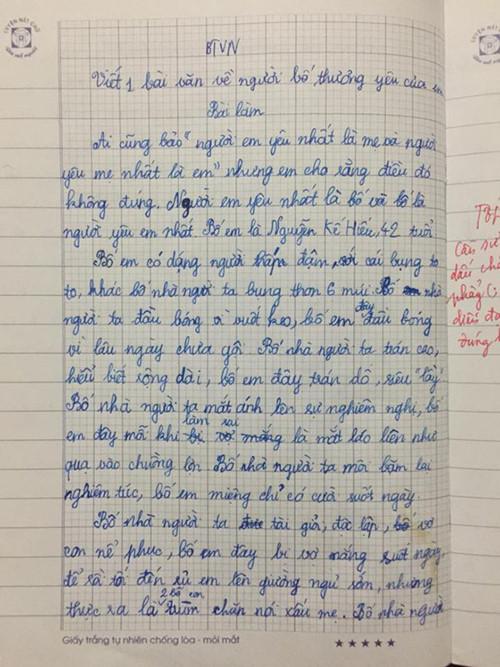 LUYỆN NÉT CHỮ
RÈN NẾT NGƯỜI
BTVN
Viết 1 bài văn về người bố thương yêu của em
Bài làm
Ai cũng bảo "người em yêu nhất là mẹ và người
yêu mẹ nhất là em" nhưng em cho rằng điều đó
không đúng. Người em yêu nhất là bố và bố là
người yêu em nhất. Bố em là Nguyễn Kế Hiếu, 42 tuổi
Bố em có dạng người đậm, với cái bụng to
to, khác bố nhà người ta bụng thon 6 múi. Bố nhà
người ta đầu bóng vì vuốt keo, bố em đây đầu bóng
vì lâu ngày chưa gội Bố nhà người ta trán cao,
hiểu biết rộng dài, bố em đây trán dô, siêu "lầy"
Bố nhà người ta mắt ánh lên sự nghiêm nghị, bố
em đây mỗi khi làm sai là mắt láo liên như
quạ vào chuồng lợn Bố nhà người ta môi bặm lại
nghiêm túc, bố em miệng chỉ có cười suốt ngày.
Bố nhà người ta tài giỏi, độc lập, vợ
con nể phục, bố em đây bị vợ mắng suốt ngày
để rồi tối đến rủ em lên giường ngủ sớm, nhưng
thực ra là 2 bố con chăn nói xấu mẹ. Bố nhà người
Giấy trắng tự nhiên chống lóa - mỏi mắt
Câu sử
dấu